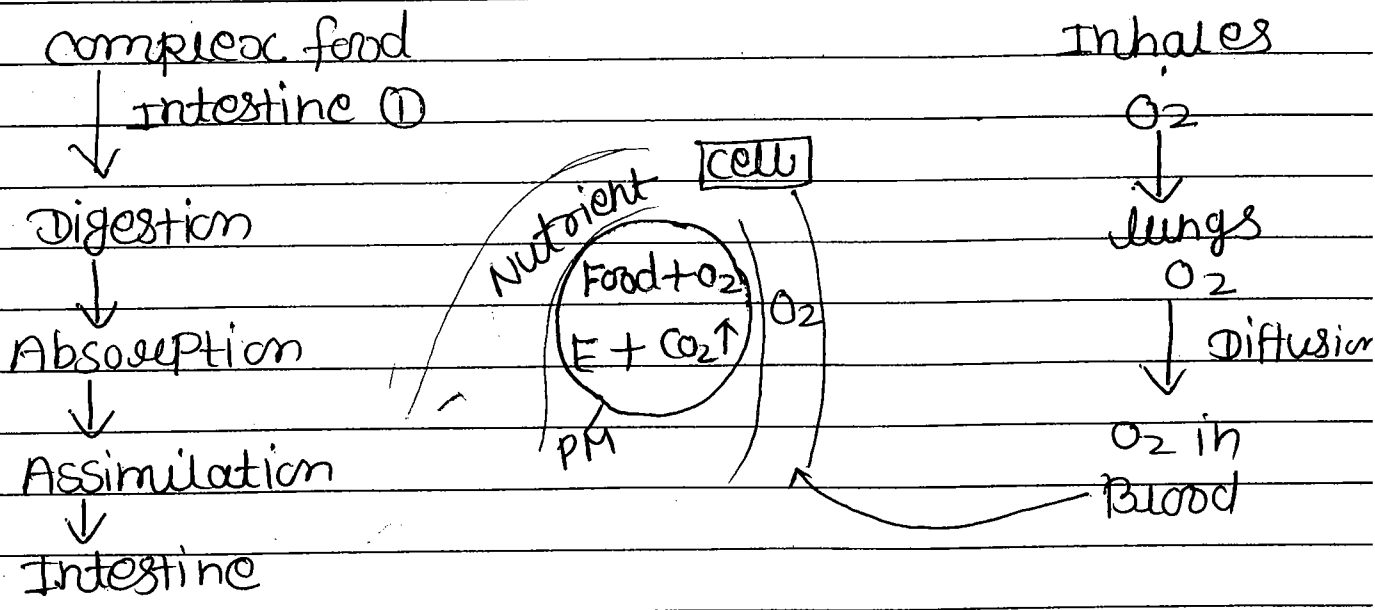 complex food
Intestine ①
Digestion
Absorption
Assimilation
Intestine
Nutrient
cell
Food + O2
E + CO2↑
PM
O2
Inhales
O2
lungs
O2
Diffusion
O2 in
Blood